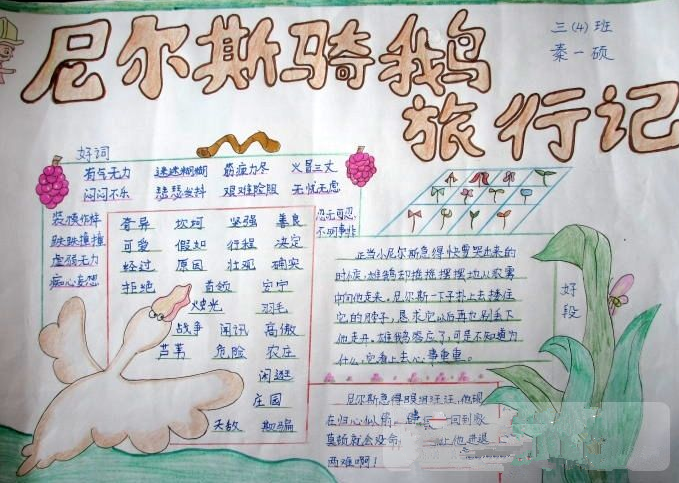 尼尔斯骑鹅
旅行记
三(4)班
秦一硕
好词
有气无力 迷迷糊糊 筋疲力尽 火冒三丈
闷闷不乐 瑟瑟发抖 艰难险阻 无忧无虑
装模作样
跌跌撞撞
虚弱无力
痴心妄想
忍无可忍
不明事非
奇异 坎坷 坚强 善良
可爱 假如 行程 决定
经过 原因 壮观 确实
拒绝 首领 安宁
烛光 羽毛
战争 闻讯 高傲
芦苇 危险 农庄
闲逛
庄园
欺骗
好段
正当小尼尔斯急得快要哭出来的
时候,雄鹅却摇摇摆摆地从浓雾
中向他走来。尼尔斯一下子扑上去搂住
它的脖子,恳求它以后再也别丢下
他走开。雄鹅答应了,可是不知道为
什么,它看上去心事重重。
尼尔斯急得眼泪汪汪,他现
在归心似箭。 一回到家
莫顿就会没命。 让他进退
两难啊!